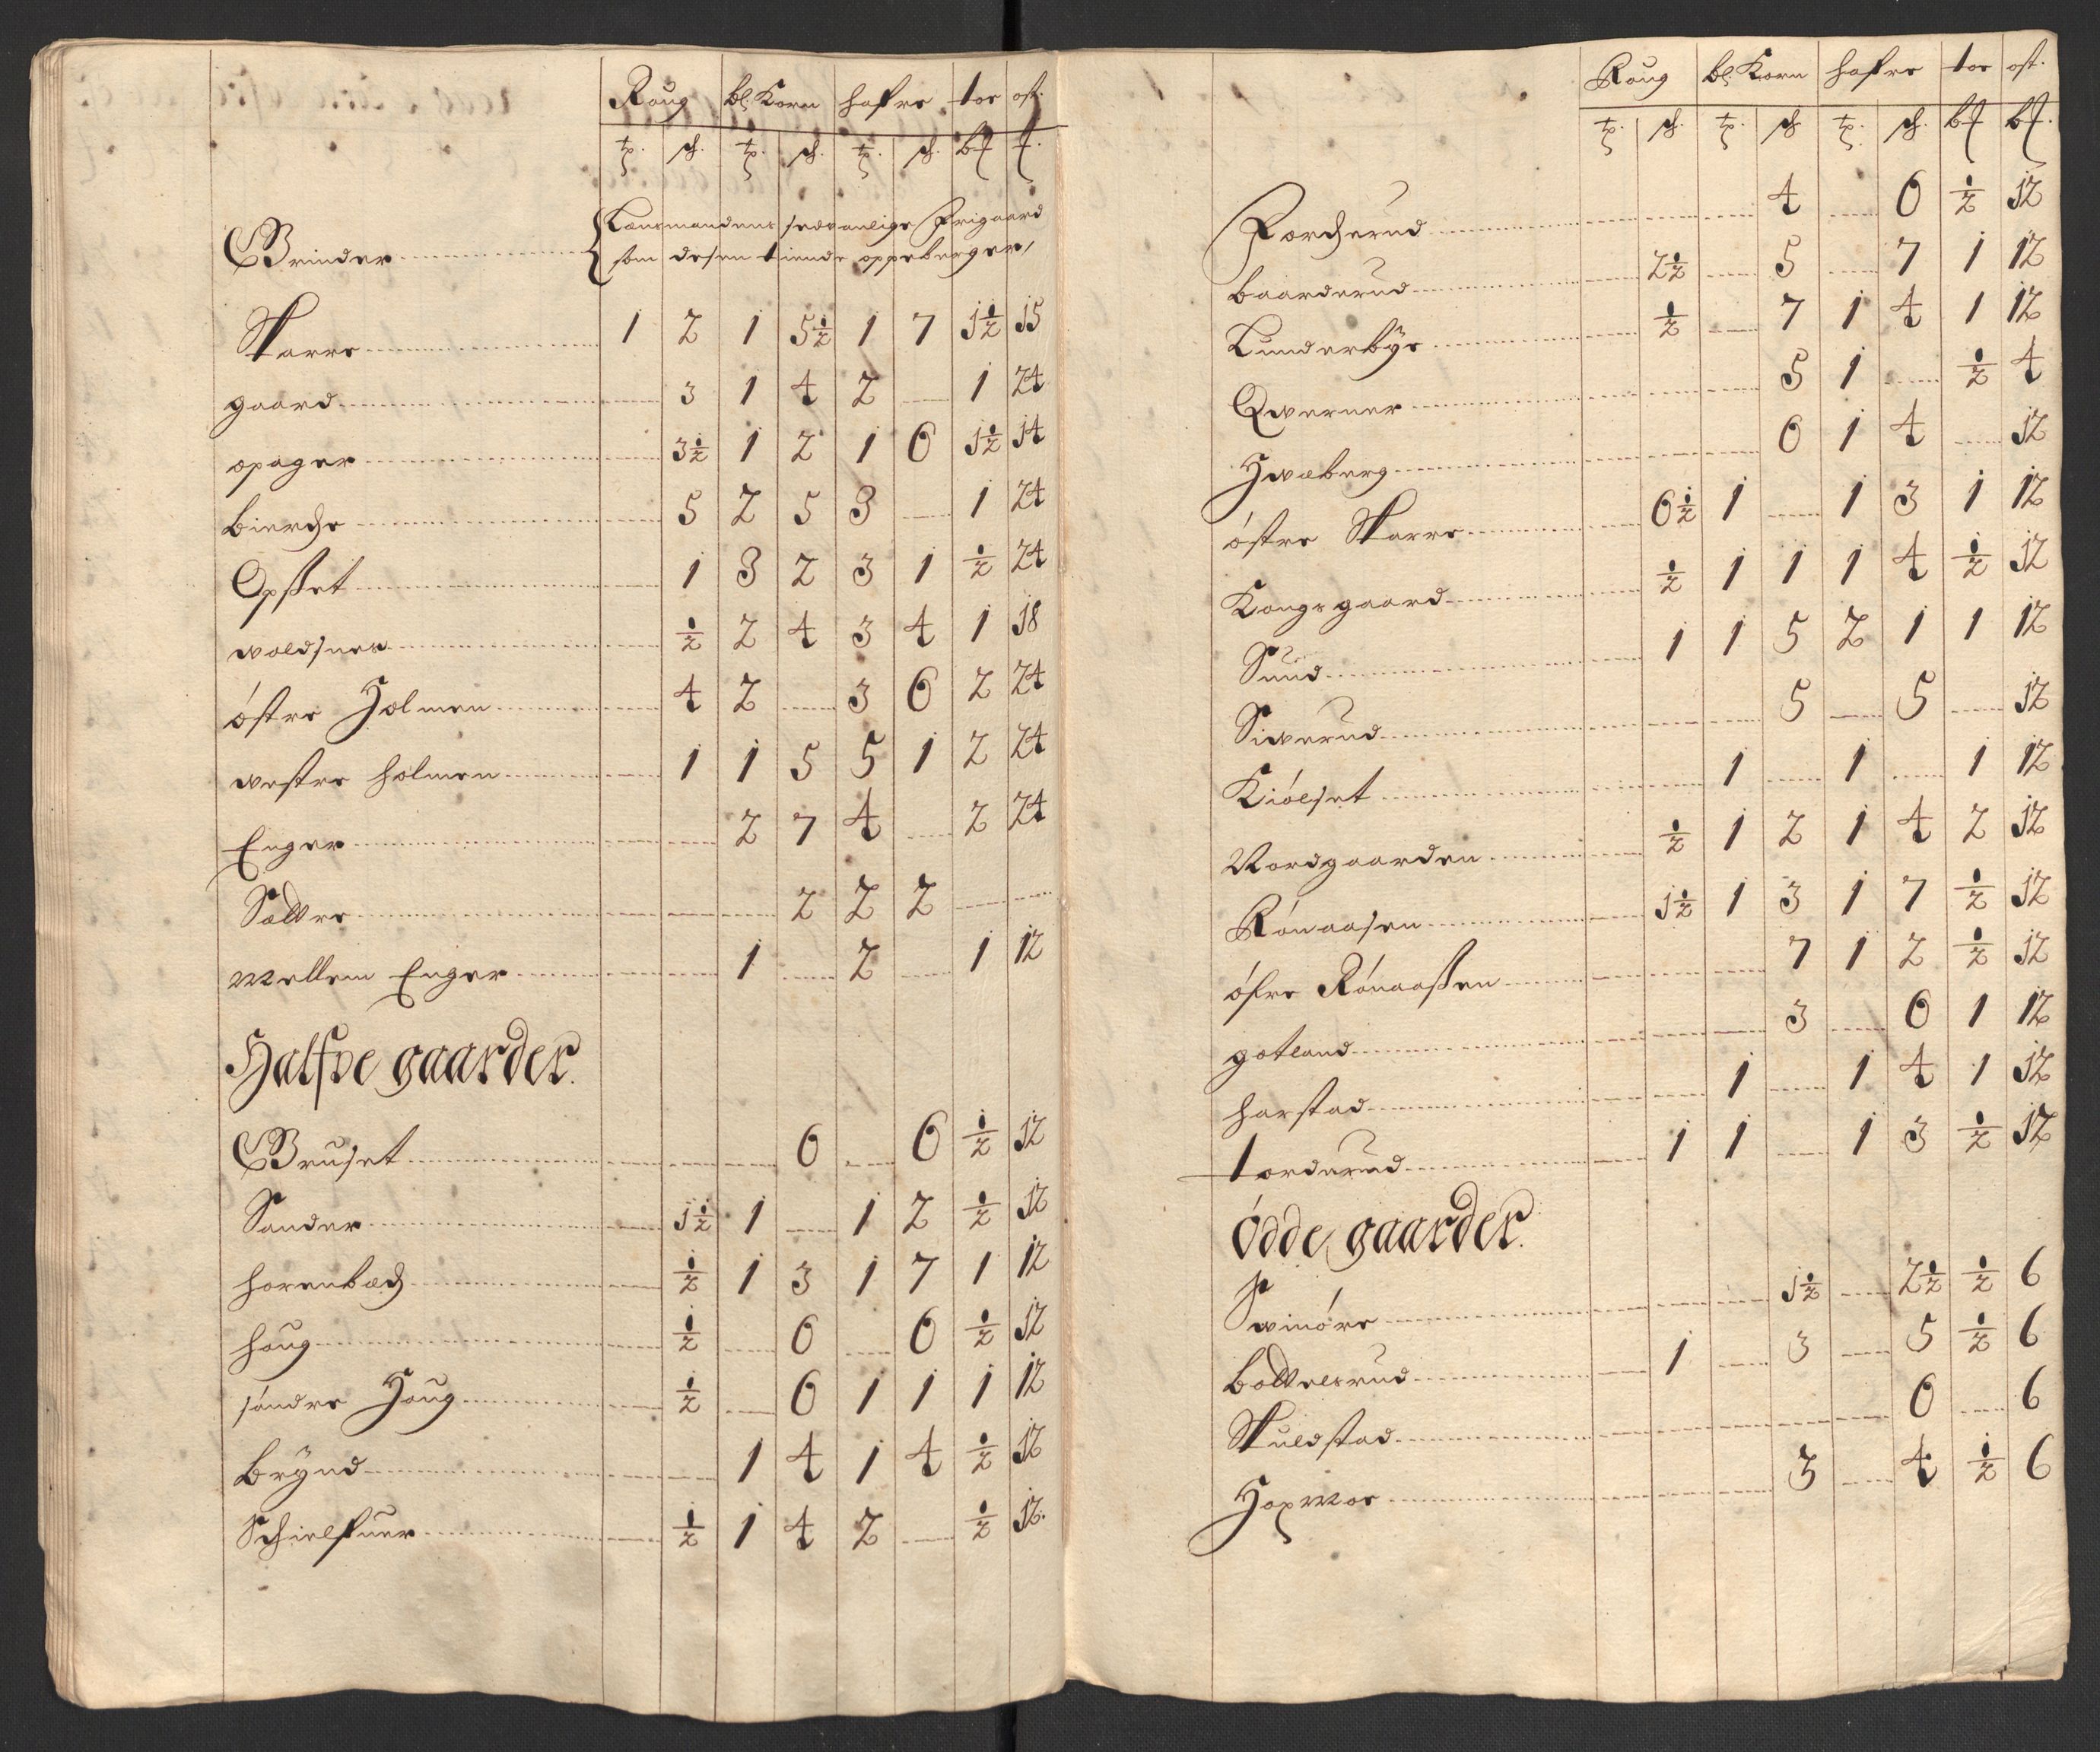 Roug bl: Korn hafre toe ost.
tp. sch. tp. sch. tp. sch. b# #.
Grinder Lensmandens sedvanlige Frigaard
som desen tiende oppeberger,
Skarre 1 2 1 5½ 1 7 1½ 15
gaard 3 1 4 2 1 24
opager 3½ 1 2 1 6 1½ 14
bierche 5 2 5 3 1 24
Opset 1 3 2 3 1 ½ 24
woldsnes ½ 2 4 3 4 1 18
óstre Holmen 4 2 3 6 2 24
westre holmen 1 1 5 5 1 2 24
Enger 2 7 4 2 24
Sættre 2 2 2
Mellem Enger 1 2 1 12
Halfve gaarder.
Gruset 6 6 ½ 12
Sander 1½ 1 1 2 ½ 12
horenbæch ½ 1 3 1 7 1 12
houg ½ 6 6 ½ 12
sóndre Houg ½ 6 1 1 1 12
Brÿnd 1 4 1 4 ½ 12
Schielfuer ½ 1 4 2 ½ 12.
Roug bl: Korn hafre toe ost.
tp. sch. tp. sch tp. sch. b# b#.
Porcherud 4 6 ½ 12
baarderud 2½ 5 7 1 12
Lunderbÿe ½ 7 1 4 1 12
Qwerner 5 1 ½ 4
Hwaberg 6 1 4 12
óstre Skarre 6½ 1 1 3 1 12
Kongsgaard ½ 1 1 1 4 ½ 12
Sund 1 1 5 2 1 1 12
Siwerud 5 5 12
Kiólset 1 1 1 12
Nordgaarden ½ 1 2 1 4 2 12
Rónaasen 1½ 1 3 1 7 ½ 12
ófre Rónaassen 7 1 2 ½ 12
gotland 3 6 1 12
harstad 1 1 4 1 12
torderud 1 1 1 3 ½ 12
Ódde gaarder.
Swinóre 1½ 2½ ½ 6
bottelsrud 1 3 5 ½ 6
Skuldstad 6 6
Hopmoe 3 4 ½ 6